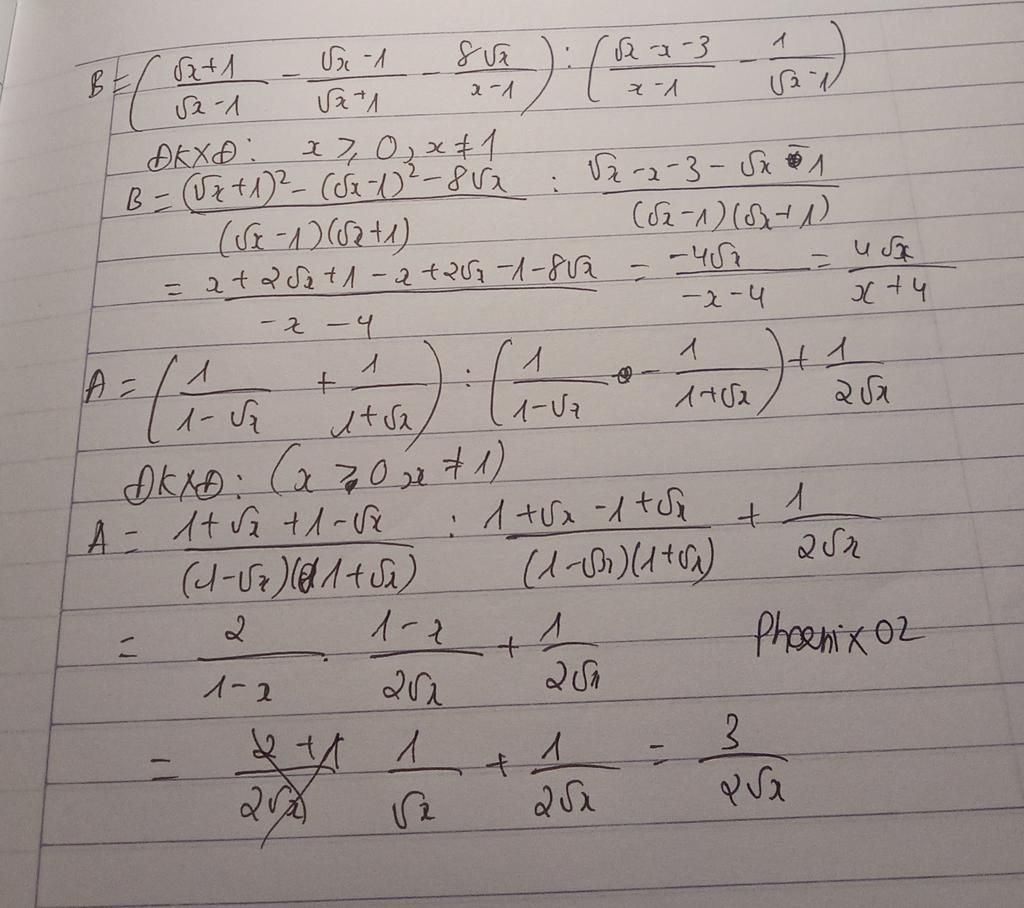 B = ( (√x+1)/(√x-1) - (√x-1)/(√x+1) - 8√x/(x-1) ) : ( (√x-x-3)/(x-1) - 1/(√x-1) )
ĐKXĐ: x ≥ 0, x ≠ 1
B = ((√x+1)² - (√x-1)² - 8√x)/((√x-1)(√x+1)) : (√x-x-3-√x-1)/((√x-1)(√x+1))
= (x+2√x+1-x+2√x-1-8√x)/(-x-4) = (-4√x)/(-x-4) = 4√x/(x+4)
A = ( 1/(1-√x) + 1/(1+√x) ) : ( 1/(1-√x) - 1/(1+√x) ) + 1/(2√x)
ĐKXĐ: (x ≥ 0 x ≠ 1)
A = (1+√x+1-√x)/((1-√x)(1+√x)) : (1+√x-1+√x)/((1-√x)(1+√x)) + 1/(2√x)
= 2/(1-x) . (1-x)/(2√x) + 1/(2√x)
Phoenix02
= 1/√x + 1/(2√x) = 3/(2√x)